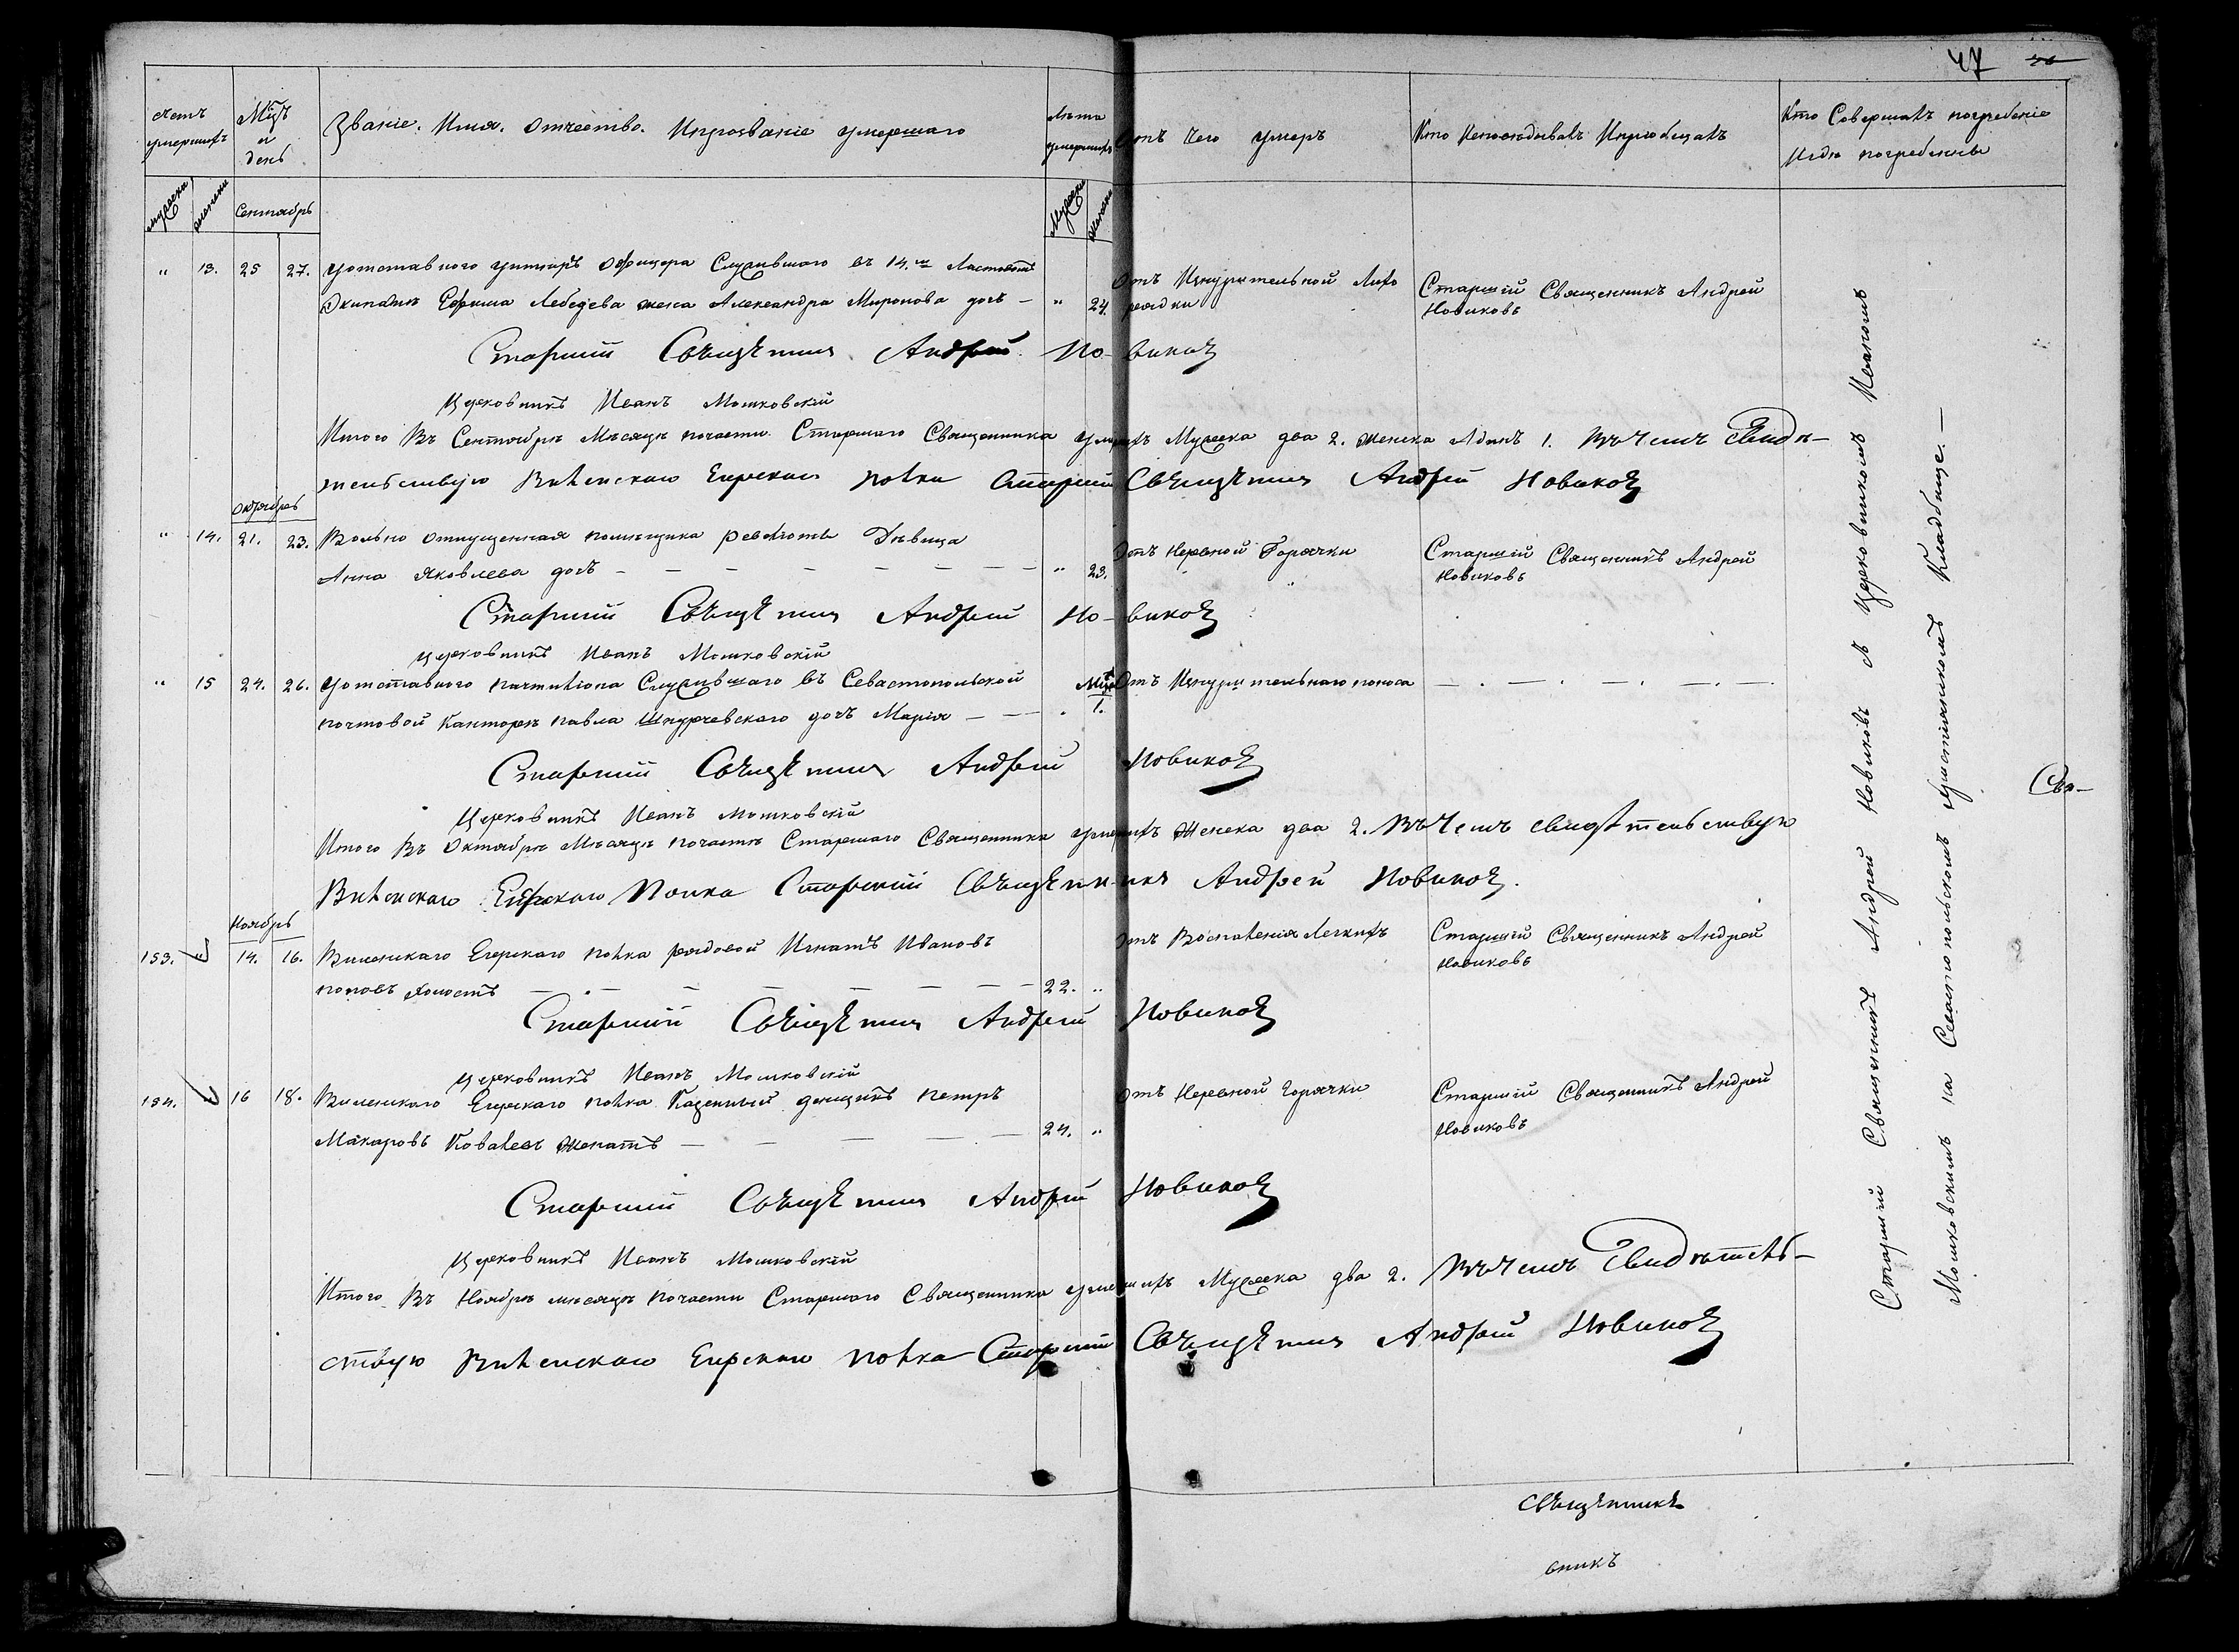 47
Счетъ умершихъ
Мцъ и день
Званіе. Имя. Отчество. Ипрозваніе умершаго
Лѣта умершихъ
Отъ чего умеръ
Кто Исповѣдывалъ Ипріобщалъ
Кто Совершалъ погребеніе
Игдѣ погребены
мужеска женска
Сентябрь
Мужеска женска
" 13. 25 27. Уотставного унтеръ Офицера Служившаго въ 14.м Ластовомъ
Экипажѣ Ефима Лебедева жена Александра Миронова дочь — " 24.
Отъ Изнурительной Лихо
радки
Старшій Священникъ Андрей
Новиковъ
Старшій Священникъ Андрей Новиковъ
Церковникъ Иванъ Мошковскій
Итого Въ Сентябрѣ Мѣсяцѣ почасти Старшаго Священника умершихъ Мужеска два 2. женска Адинъ 1. Въчемъ Свидѣ—
тельствую Виленскаго Егерскаго полка Старший Священникъ Андрей Новиковъ
Октябрь
" 14. 21. 23. Вольно отпущенная помѣщика Девица
Анна Яковлева дочь — — — — — — — " 23.
Отъ Нервной Горячки
Старшій Священникъ Андрей
Новиковъ
Старший Священникъ Андрей Новиковъ
Церковникъ Иванъ Мошковскій
" 15 24. 26. Уотставного пачталіона Служившаго въ Севастопольской
почтовой Канторѣ павла Шнурчевскаго дочь Марія — — — . Мцъ 1.
Отъ Изнурительнаго поноса — . — . — . — . —
Старший Священникъ Андрей Новиковъ
Церковникъ Иванъ Мошковскій
Итого Въ Октябрѣ Мѣсяцѣ почасти Старшаго Священника умершихъ Женска два 2. Въчемъ свидѣтельствую
Виленскаго Егерскаго Полка Старший Священникъ Андрей Новиковъ.
Ноябрь
153. 14. 16. Виленскаго Егерскаго полка рядовой Игнатъ Ивановъ
поповъ холостъ — — — — — — — 22. "
Отъ Воспаленія Легкихъ
Старшій Священникъ Андрей
Новиковъ
Старший Священникъ Андрей Новиковъ
Церковникъ Иванъ Мошковскій
154. 16 18. Виленскаго Егерскаго полка Казенный денщикъ петръ
Макаровъ Ковалевъ женатъ — — — — — 24. "
Отъ Нервной Горячки
Старшій Священникъ Андрей
Новиковъ
Старший Священникъ Андрей Новиковъ
Церковникъ Иванъ Мошковскій
Итого Въ Ноябрѣ мѣсяцѣ почасти Старшаго Священника умершихъ Мужеска два 2. Въчемъ Свидѣтель—
ствую Виленскаго Егерскаго полка Старший Священникъ Андрей Новиковъ
Старшій Священникъ Андрей Новиковъ съ Церковникомъ Иваномъ
Мошковскимъ на Севастопольскомъ христіянскомъ Кладбище. —
Свя—
Священникъ
вникъ